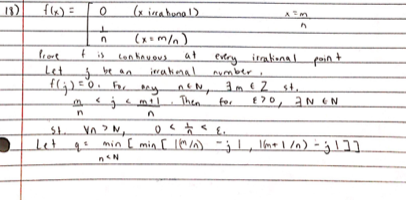 18) f(x) = [ 0 (x irrational) x = m/n
1/n (x = m/n)
Prove f is continuous at every irrational point
Let j be an irrational number.
f(j) = 0. For any n ∈ N, ∃m ∈ Z st.
m/n < j < m+1/n. Then for ε > 0, ∃ N ∈ N
st. ∀n > N, 0 < 1/n < ε.
Let q = min [ min [ |(m/n) - j|, |(m+1/n) - j| ] ]
n<N